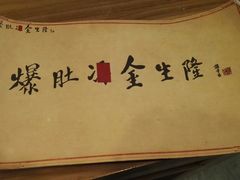 爆肚冯金生隆
爆肚冯金生隆